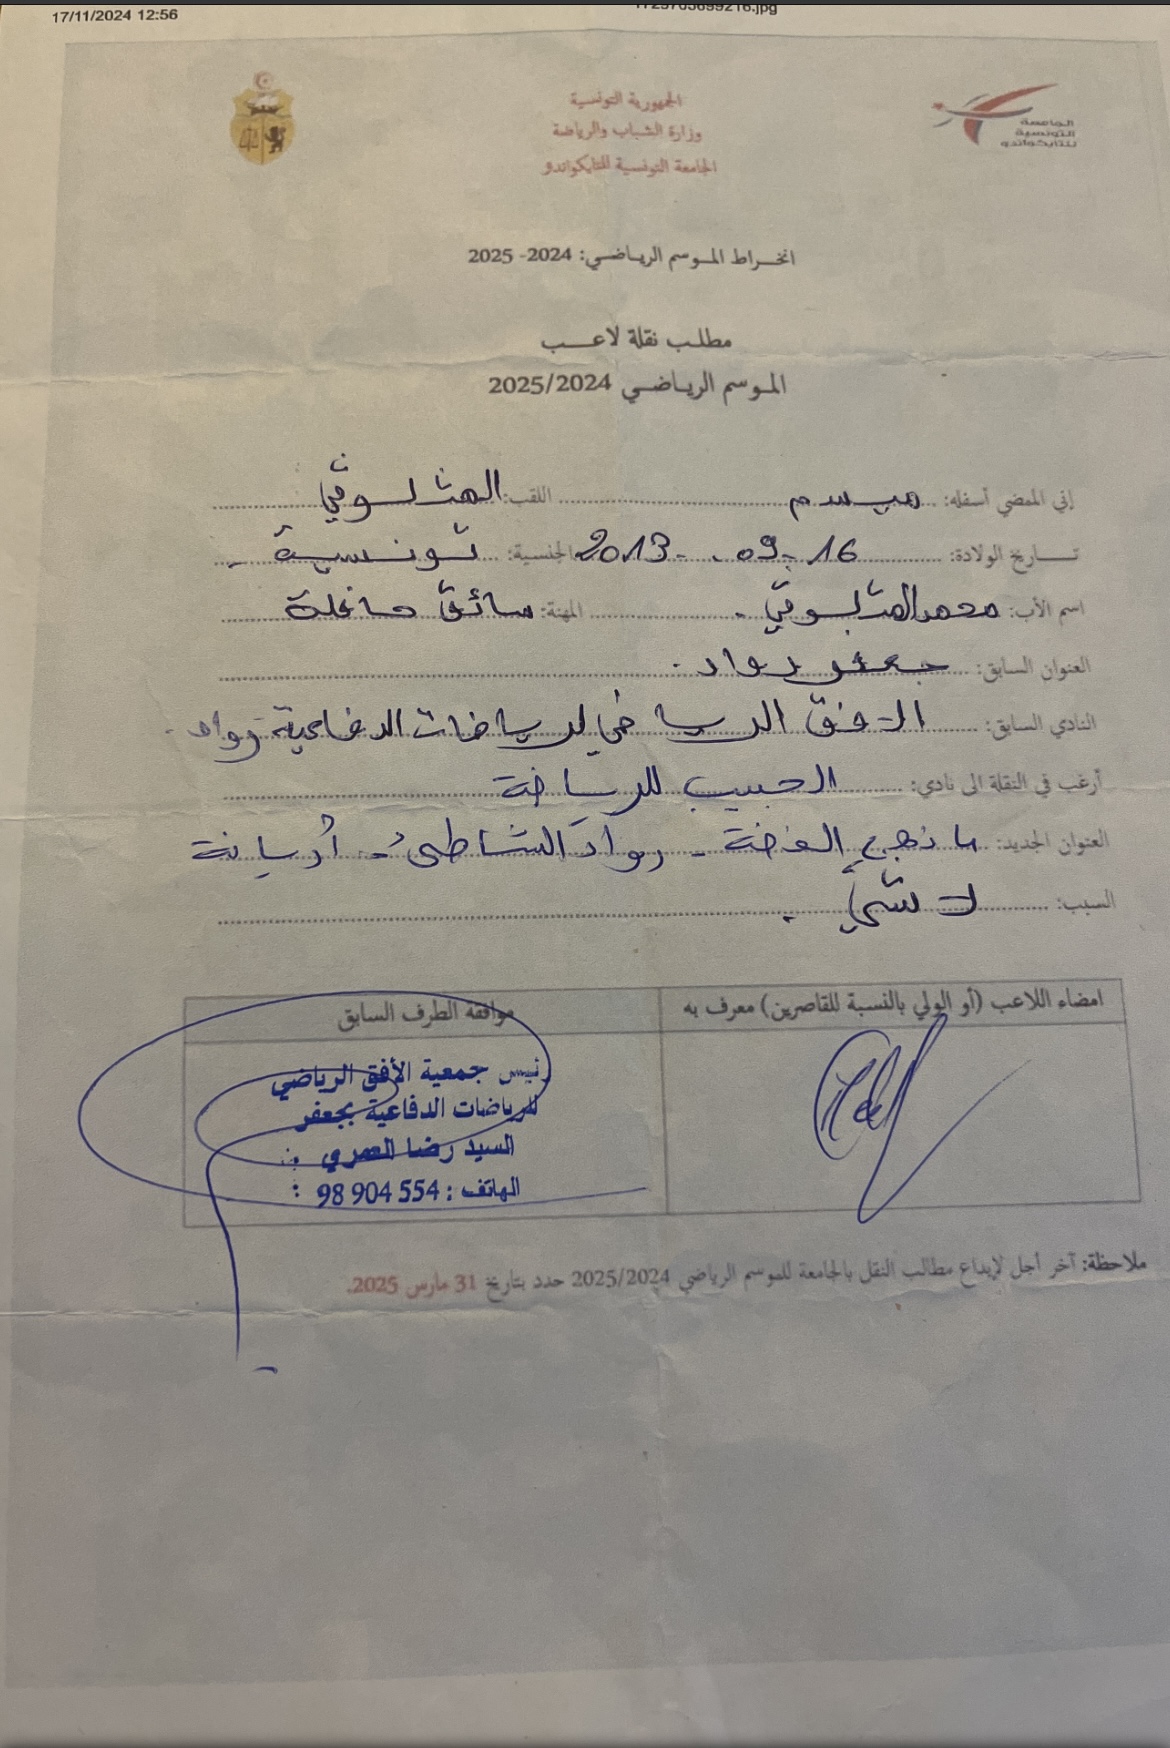 17/11/2024 12:56
1729703699216.jpg
الجمهورية التونسية
وزارة الشباب والرياضة
الجامعة التونسية للتايكواندو
الجامعة
التونسية
للتايكواندو
انخراط الموسم الرياضي: 2024- 2025
مطلب نقلة لاعب
الموسم الرياضي 2025/2024
إني الممضي أسفله: ميسم اللقب: المثلوثي
تاريخ الولادة: 16 - 09 - 2013 الجنسية: تونسية
اسم الأب: محمد المثلوثي المهنة: سائق حافلة
العنوان السابق: جعفر رواد
النادي السابق: الافق الرياضي للرياضات الدفاعية رواد
أرغب في النقلة الى نادي: الحبيب للرياضة
العنوان الجديد: نهج الفضة - رواد الشاطئ - أريانة
السبب: لا شيء
امضاء اللاعب (أو الولي بالنسبة للقاصرين) معرف به
موافقة الطرف السابق
رئيس جمعية الأفق الرياضي
للرياضات الدفاعية بجعفر
السيد رضا العمري
الهاتف : 98 904 554 :
ملاحظة: آخر أجل لإيداع مطالب النقل بالجامعة للموسم الرياضي 2025/2024 حدد بتاريخ 31 مارس 2025.